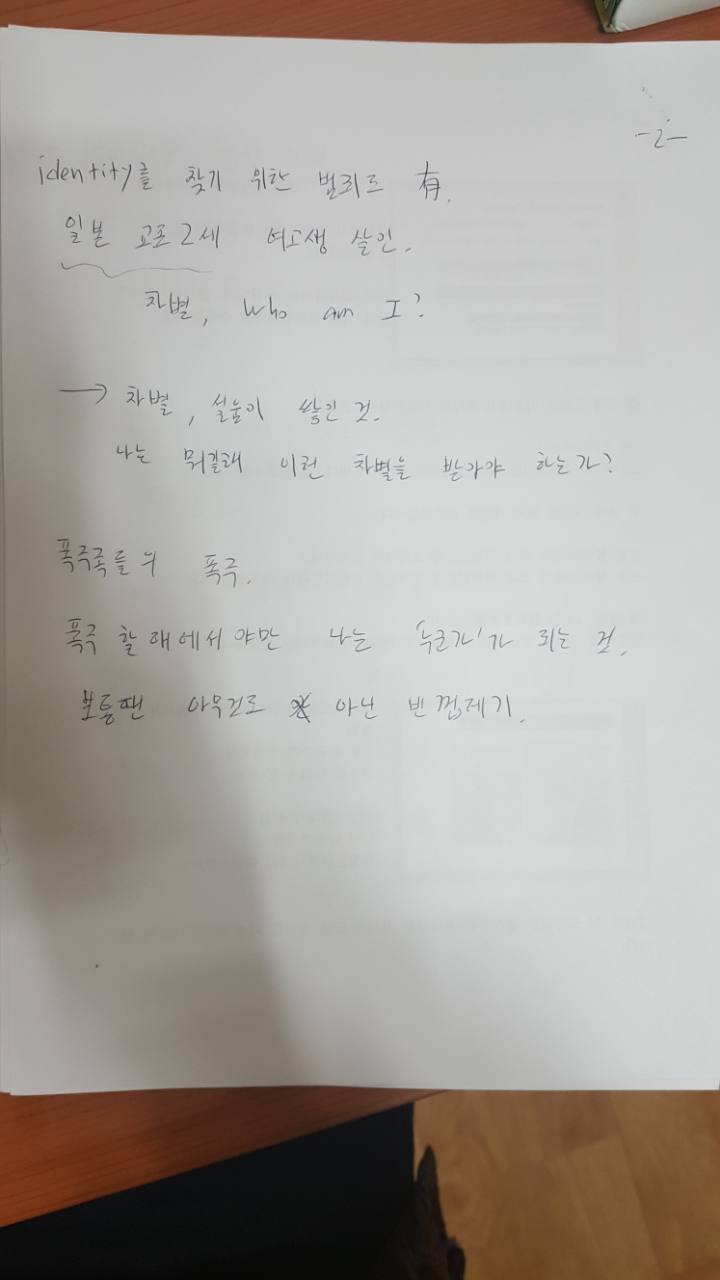 -2-
identity를 찾기 위한 범죄도 有.
일본 교포 2세 여고생 살인.
차별, Who am I?
→ 차별, 설움이 쌓인 것.
나는 뭐길래 이런 차별을 받아야 하는가?
폭주족들의 폭주.
폭주 할 때에서야만 나는 '누군가'가 되는 것.
보통땐 아무것도 아닌 빈 껍데기.